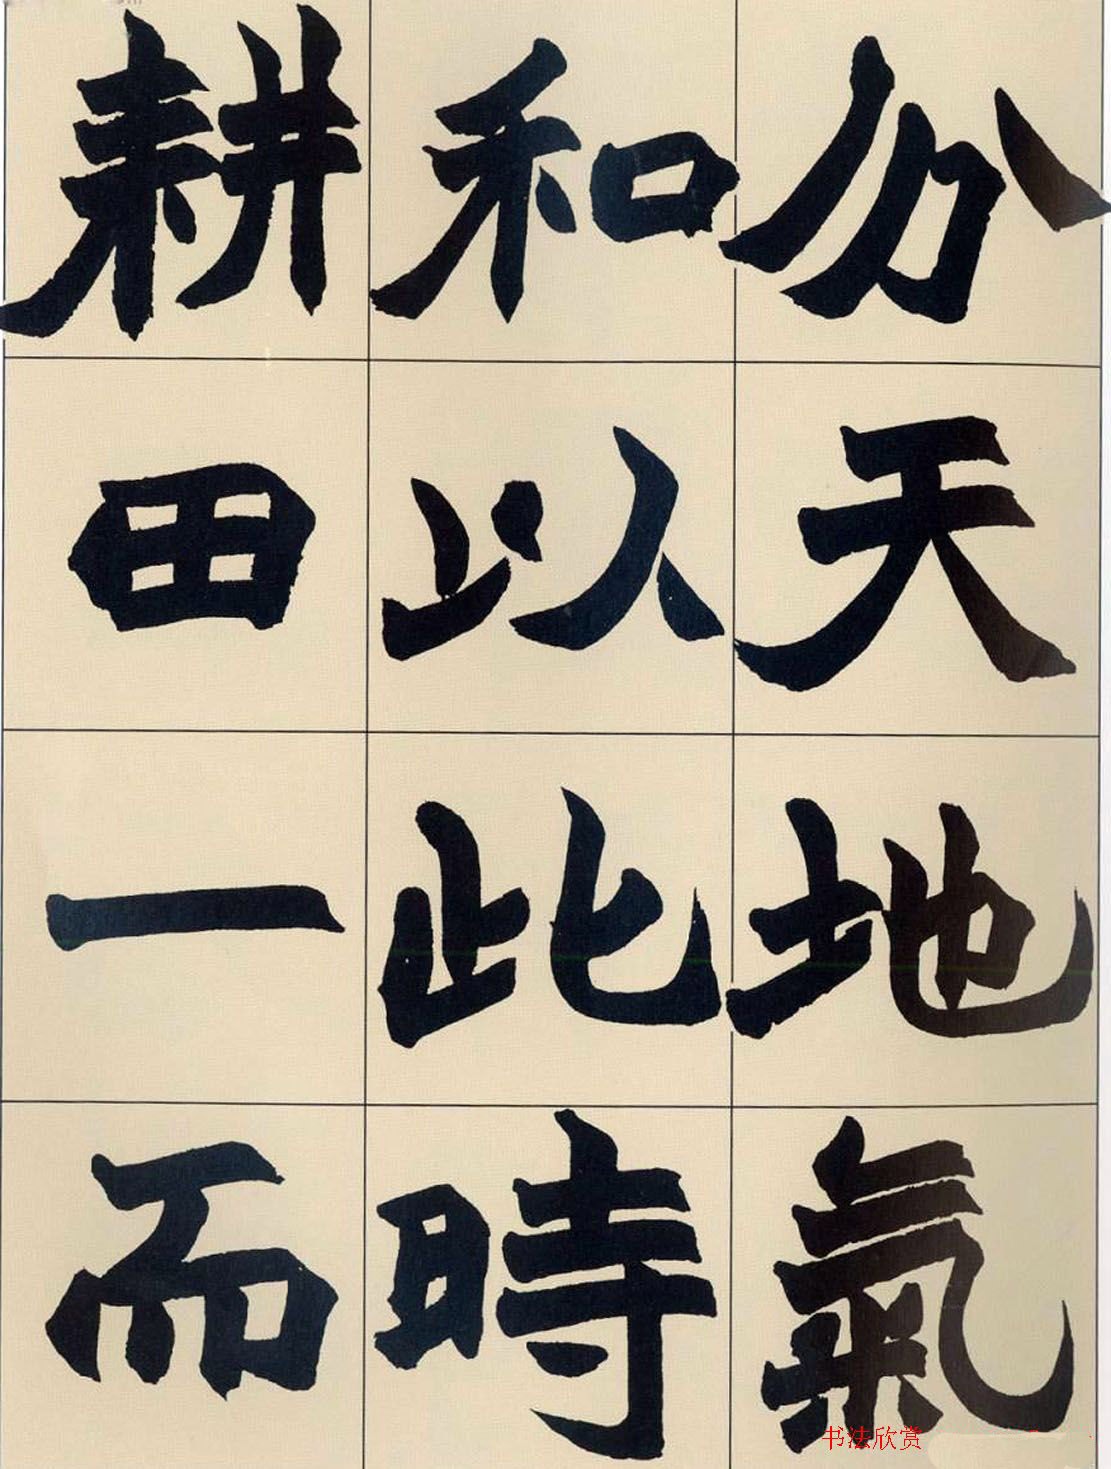 分天地氣
和以此時
耕田一而
书法欣赏